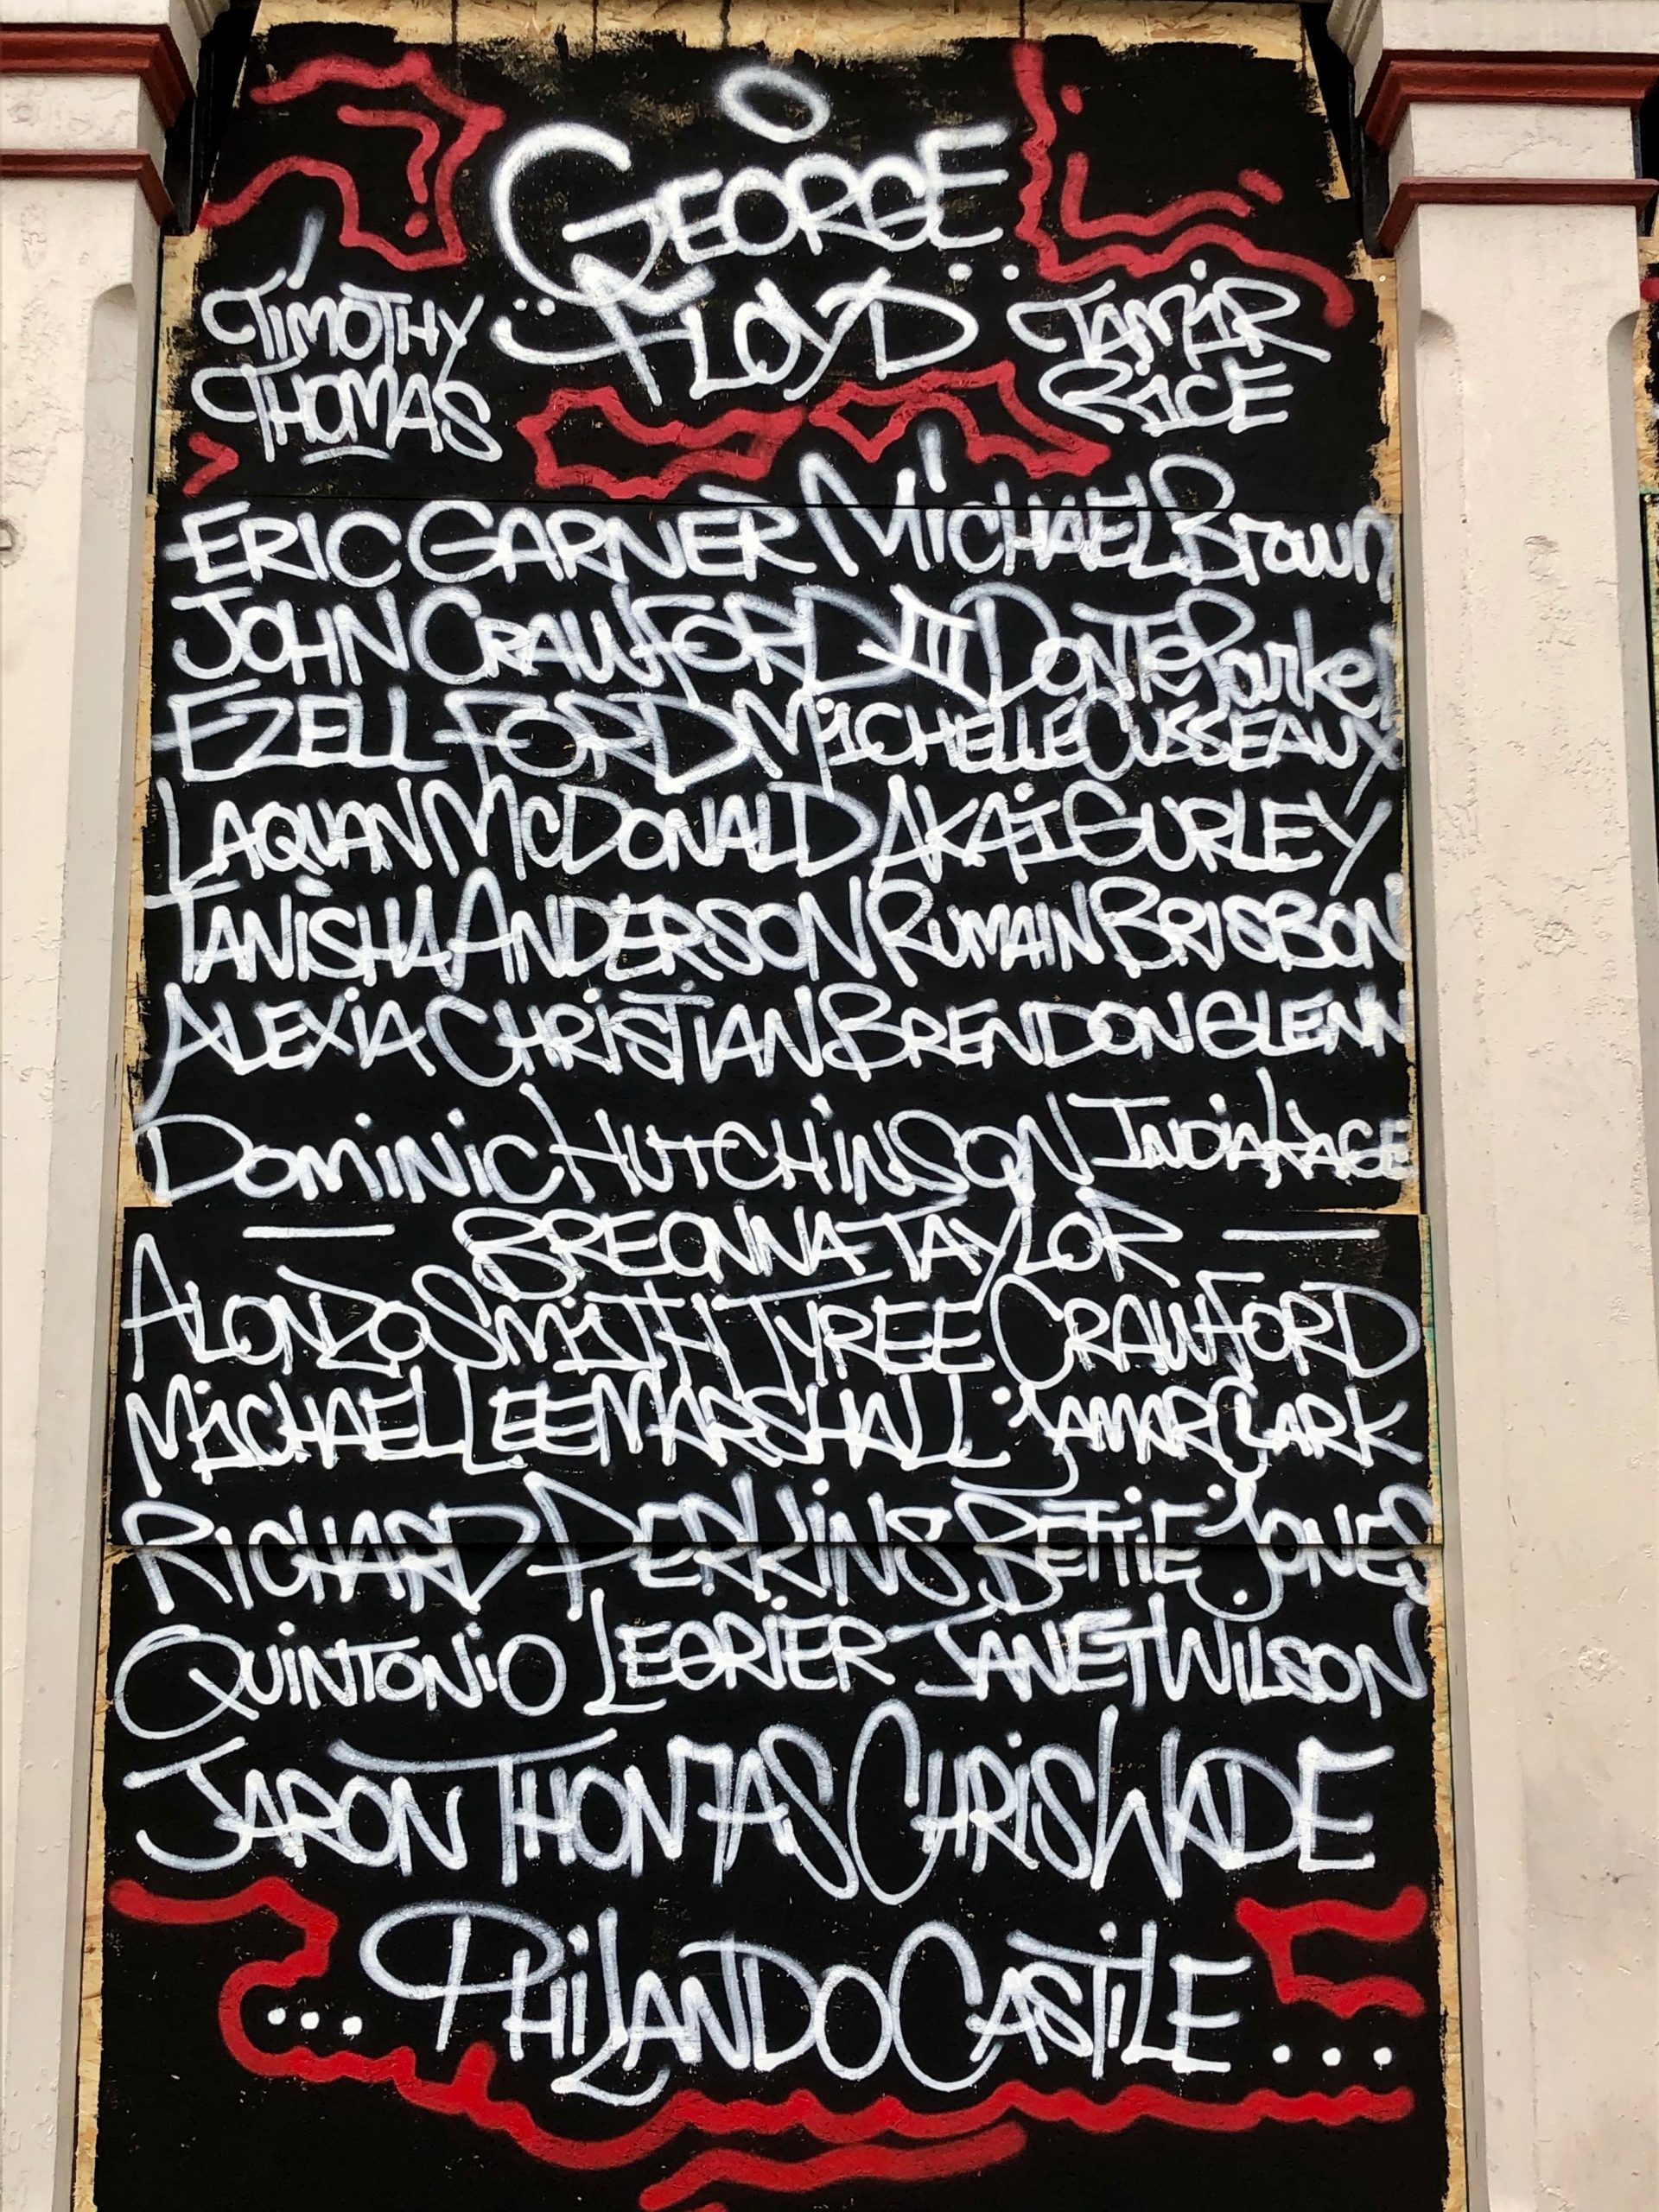 GEORGE
FLOYD
TIMOTHY
THOMAS
TAMIR
RICE
ERIC GARNER MICHAEL BROWN
JOHN CRAWFORD III DONTE Parker
EZELL FORD MICHELLE CUSSEAUX
LAQUAN MCDONALD AKAI GURLEY
TANISHA ANDERSON RUMAIN BRISBON
ALEXIA CHRISTIAN BRENDON GLENN
DOMINIC HUTCHINSON INDIA KAGE
— BREONNA TAYLOR —
ALONZO SMITH TYREE CRAWFORD
MICHAEL LEE MARSHALL JAMAR CLARK
RICHARD PERKINS BETTIE JONES
QUINTONIO LEGRIER JANET WILSON
JARON THOMAS CHRIS WADE
... PHILANDO CASTILE ...